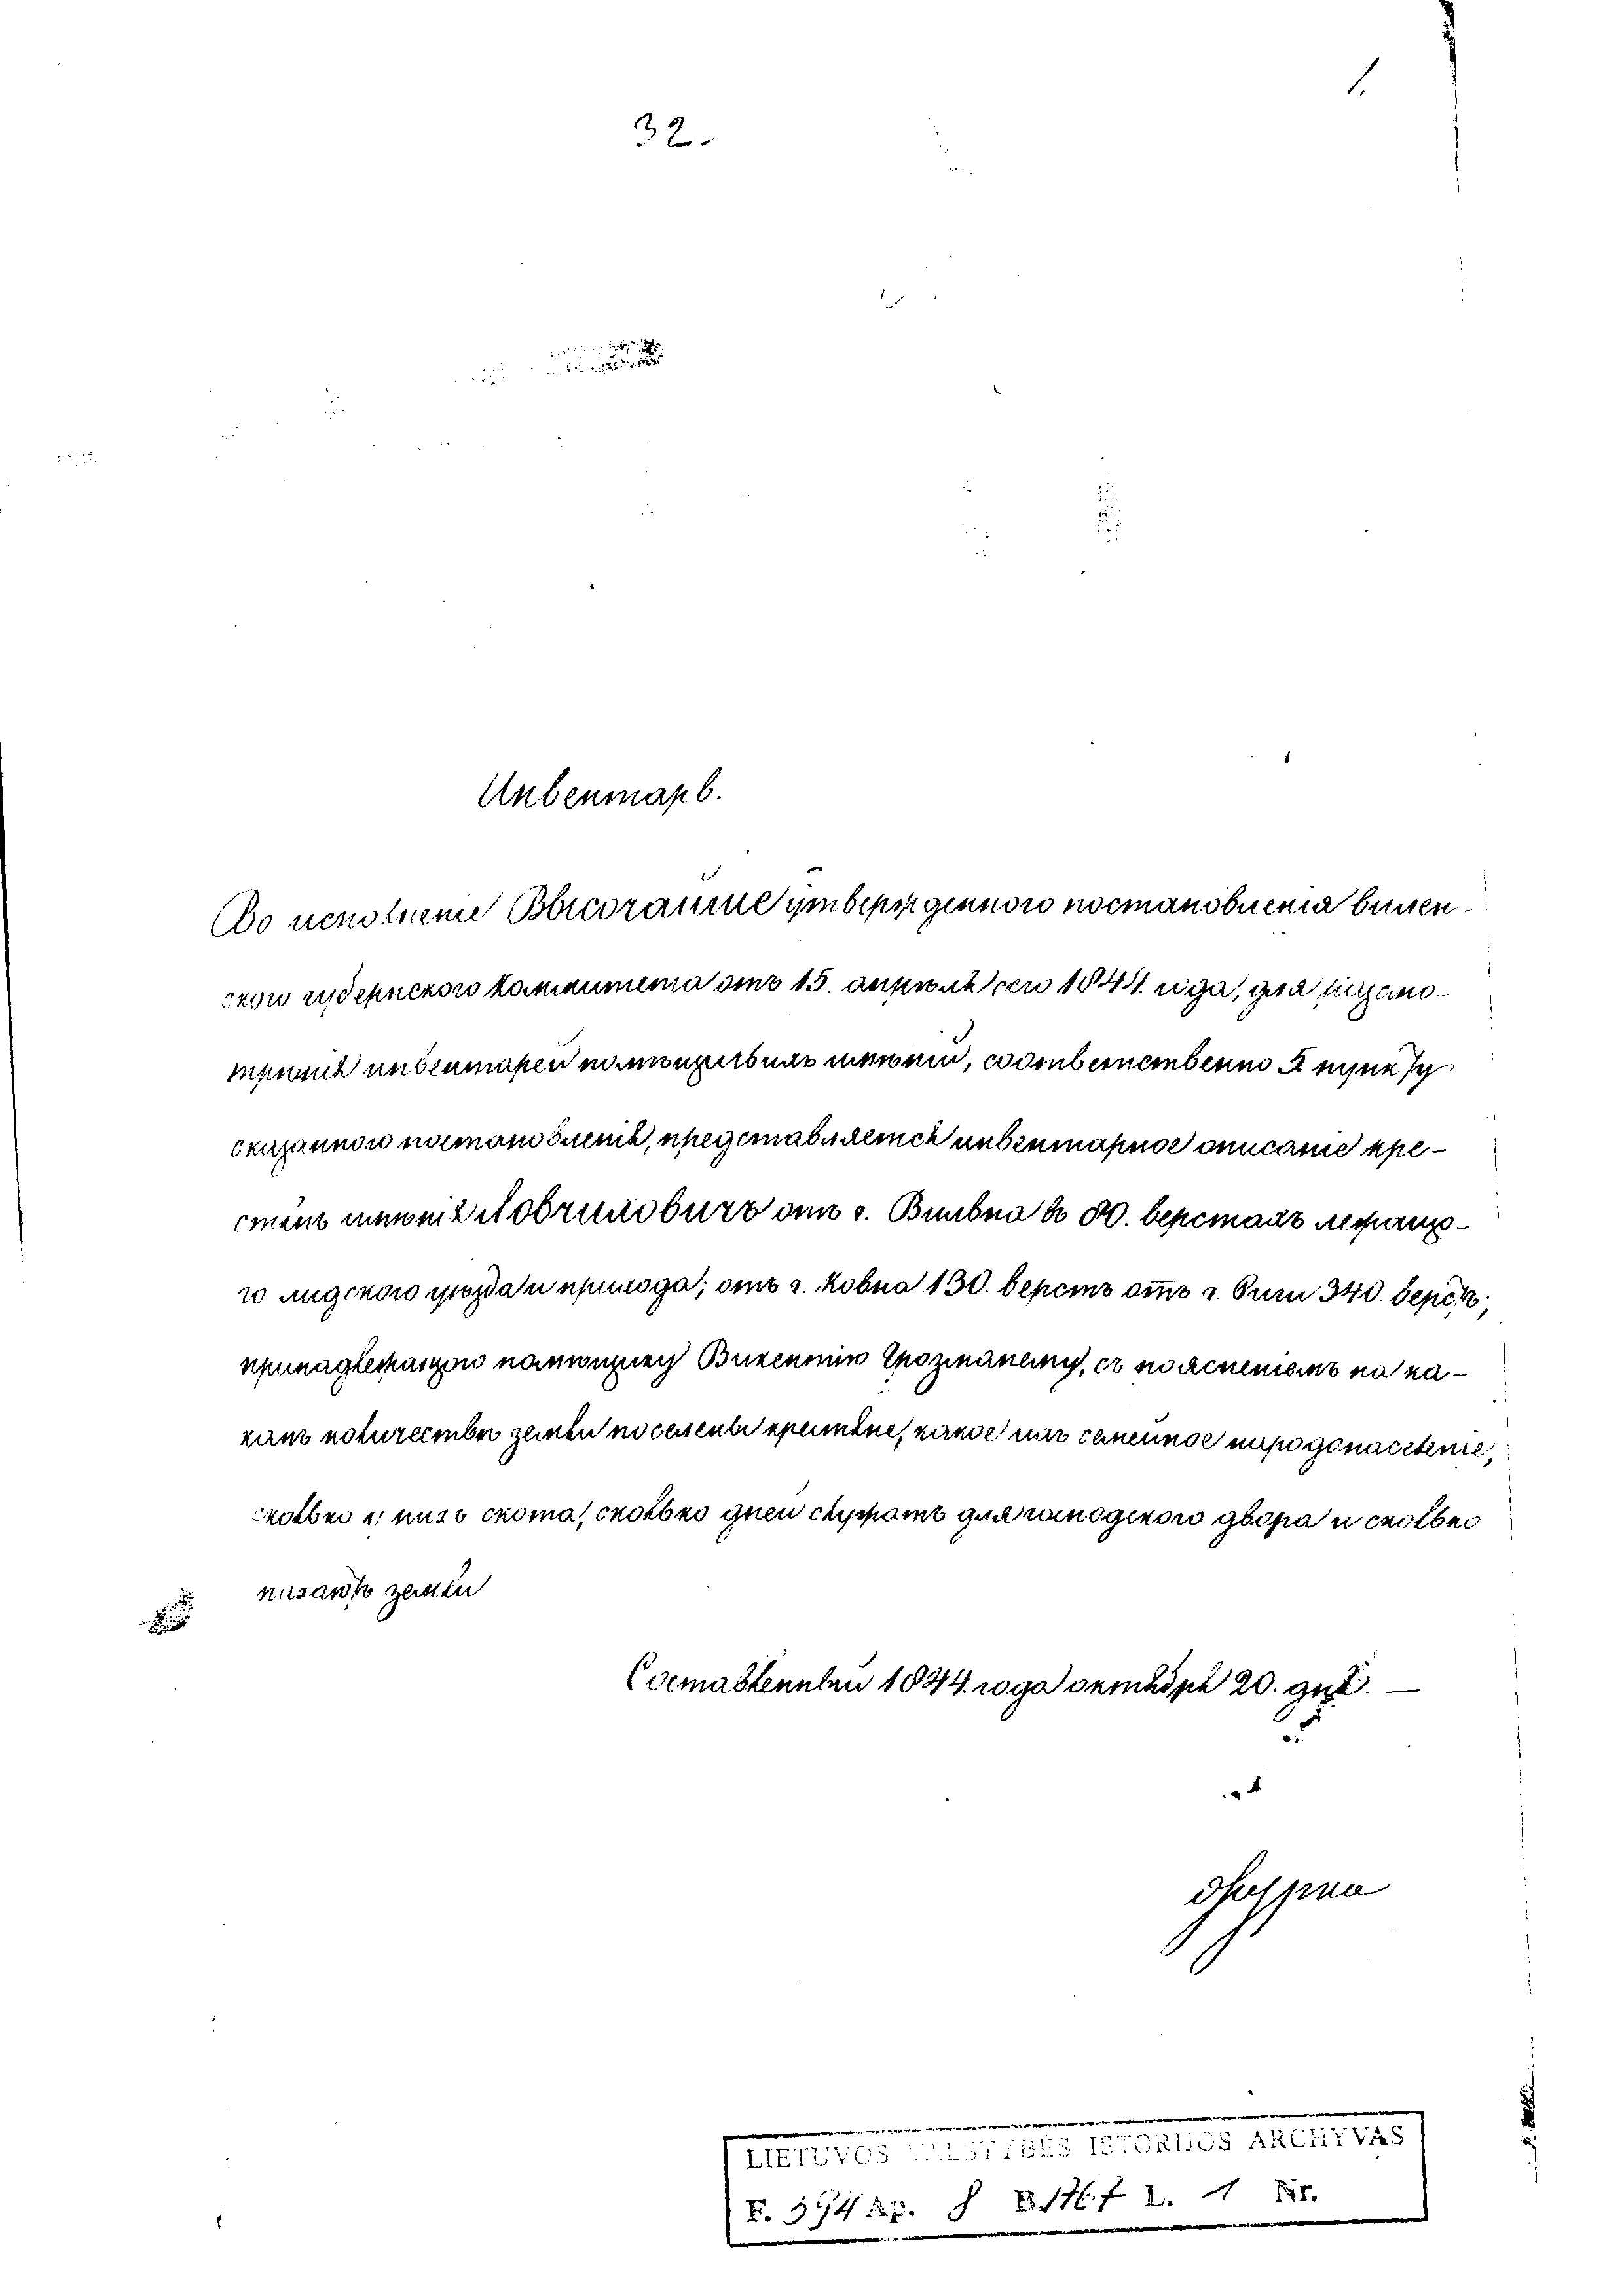 1.
32.
Инвентарь.
Во исполненіе Высочайше утвержденного постановленія вилен-
ского губернского комитета отъ 15. апрѣля сего 1844. года, для
инвентарей помѣщичьихъ имѣній, соотвѣтственно
сказанного постановленія, представляется инвентарное описаніе кре-
стьянъ имѣнія отъ г. Вильна въ 80. верстахъ лежащо-
го Лидского уѣзда и прихода; отъ г. Ковна 130. верстъ отъ г. Риги 340. верстъ;
принадлежащого помѣщику Викентію съ поясненіемъ на ка-
комъ количествѣ земли поселены крестьяне, какое ихъ семейное народонаселеніе,
сколько у нихъ скота, сколько дней служатъ для господского двора и сколько
пашутъ земли
Составленный 1844. года октября 20. дня. —
LIETUVOS VALSTYBĖS ISTORIJOS ARCHYVAS
F. 394 Ap. 8 B. 1767 L. 1 Nr.